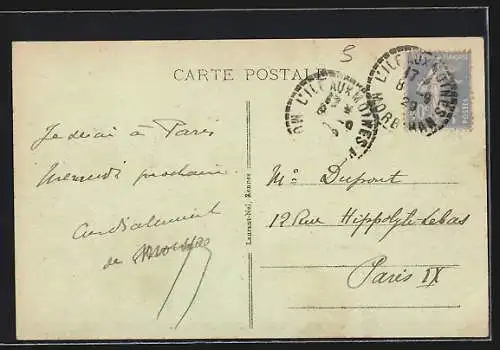 5
CARTE POSTALE
L'ILE AUX MOINES
MORBIHAN
17
8 - 9
29
L'ILE AUX MOINES
POSTES
Je serai à Paris
mercredi prochain
Cordialement
de
Laurent-Nel, Rennes
Mr Dupont
12 Rue Hippolyte Lebas
Paris IX